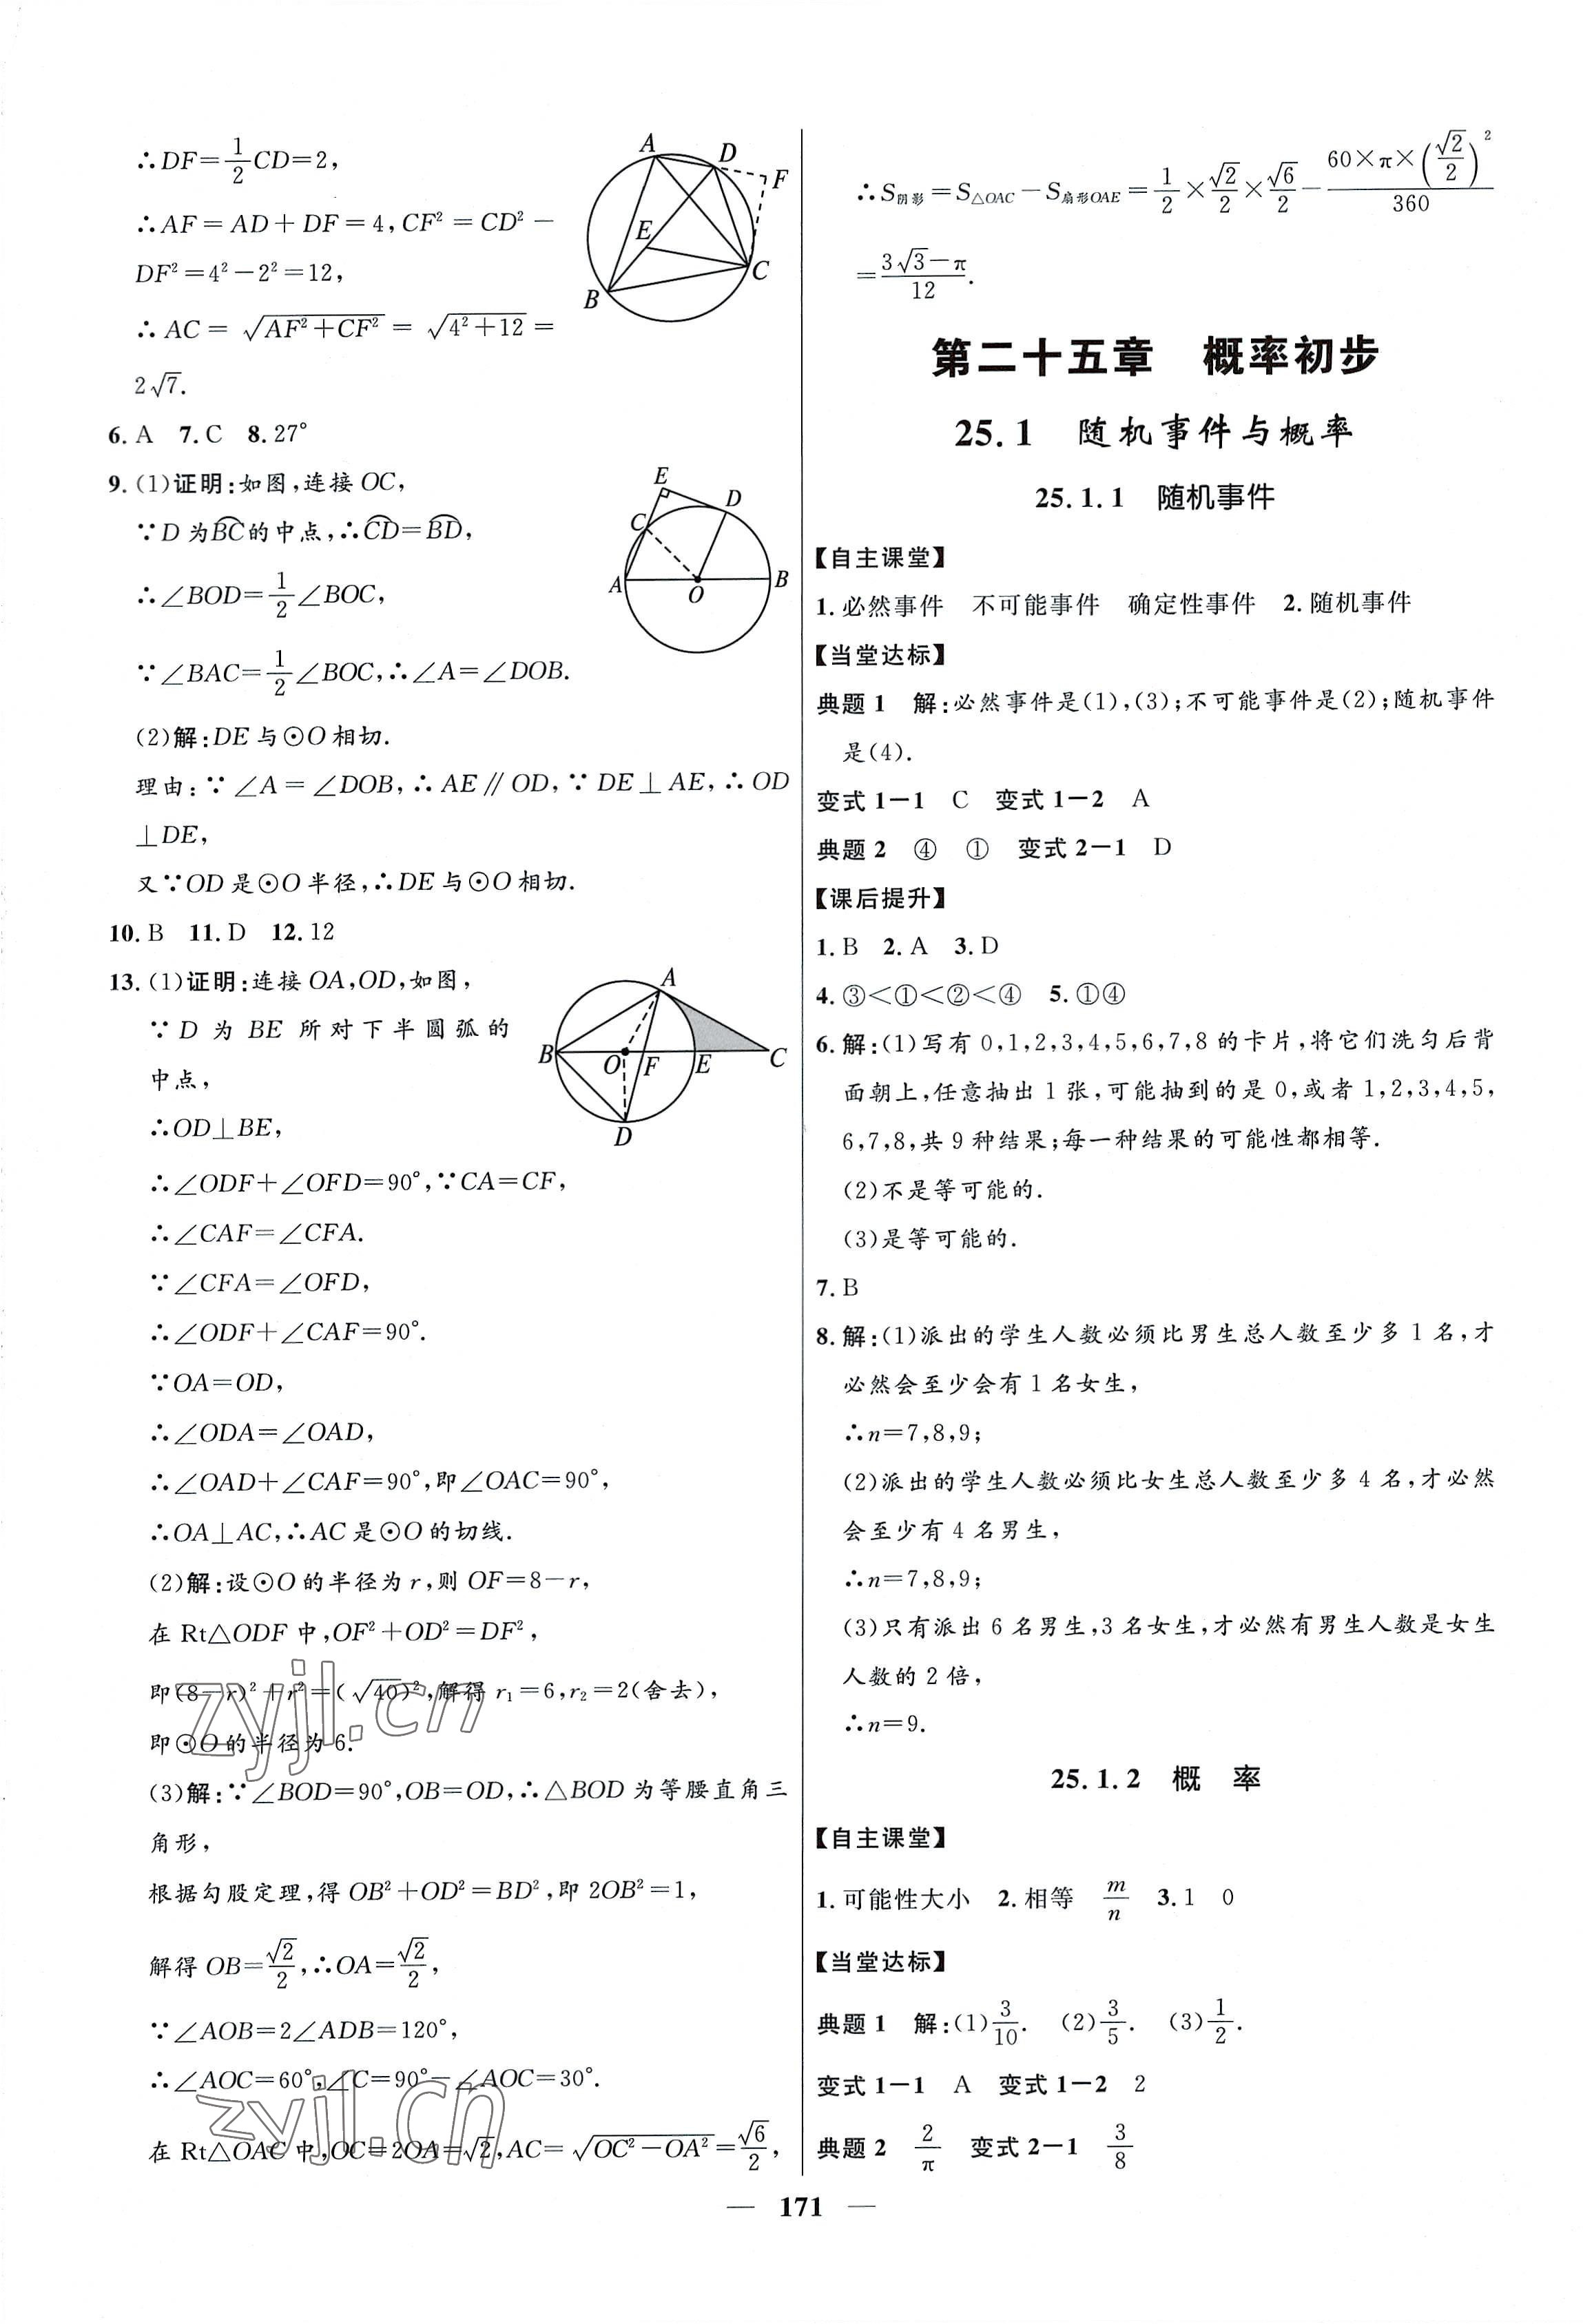 ∴DF=1/2CD=2,
∴AF=AD+DF=4,CF²=CD²-
DF²=4²-2²=12,
∴AC=√(AF²+CF²)=√(4²+12)=
2√7.
A D F E B C
6.A 7.C 8.27°
9.(1)证明:如图,连接OC,
∵D为B͡C的中点,∴C͡D=B͡D,
∴∠BOD=1/2∠BOC,
∵∠BAC=1/2∠BOC,∴∠A=∠DOB.
E D C A O B
(2)解:DE与⊙O相切.
理由:∵∠A=∠DOB,∴AE∥OD,∵DE⊥AE,∴OD
⊥DE,
又∵OD是⊙O半径,∴DE与⊙O相切.
10.B 11.D 12.12
13.(1)证明:连接OA,OD,如图,
∵D为BE所对下半圆弧的
中点,
∴OD⊥BE,
A B O F E C D
∴∠ODF+∠OFD=90°,∵CA=CF,
∴∠CAF=∠CFA.
∵∠CFA=∠OFD,
∴∠ODF+∠CAF=90°.
∵OA=OD,
∴∠ODA=∠OAD,
∴∠OAD+∠CAF=90°,即∠OAC=90°,
∴OA⊥AC,∴AC是⊙O的切线.
(2)解:设⊙O的半径为r,则OF=8-r,
在Rt△ODF中,OF²+OD²=DF²,
即(8-r)²+r²=(√40)²,解得r₁=6,r₂=2(舍去),
即⊙O的半径为6.
(3)解:∵∠BOD=90°,OB=OD,∴△BOD为等腰直角三
角形,
根据勾股定理,得OB²+OD²=BD²,即2OB²=1,
解得OB=√2/2,∴OA=√2/2,
∵∠AOB=2∠ADB=120°,
∴∠AOC=60°,∠C=90°-∠AOC=30°.
在Rt△OAC中,OC=2OA=√2,AC=√(OC²-OA²)=√6/2,
zyjl.cn
zyjl.cn
∴S阴影=S△OAC-S扇形OAE=1/2×√2/2×√6/2-(60×π×(√2/2)²)/360
=(3√3-π)/12.
第二十五章 概率初步
25.1 随机事件与概率
25.1.1 随机事件
【自主课堂】
1.必然事件 不可能事件 确定性事件 2.随机事件
【当堂达标】
典题1 解:必然事件是(1),(3);不可能事件是(2);随机事件
是(4).
变式1-1 C 变式1-2 A
典题2 ④ ① 变式2-1 D
【课后提升】
1.B 2.A 3.D
4.③<①<②<④ 5.①④
6.解:(1)写有0,1,2,3,4,5,6,7,8的卡片,将它们洗匀后背
面朝上,任意抽出1张,可能抽到的是0,或者1,2,3,4,5,
6,7,8,共9种结果;每一种结果的可能性都相等.
(2)不是等可能的.
(3)是等可能的.
7.B
8.解:(1)派出的学生人数必须比男生总人数至少多1名,才
必然会至少会有1名女生,
∴n=7,8,9;
(2)派出的学生人数必须比女生总人数至少多4名,才必然
会至少有4名男生,
∴n=7,8,9;
(3)只有派出6名男生,3名女生,才必然有男生人数是女生
人数的2倍,
∴n=9.
25.1.2 概 率
【自主课堂】
1.可能性大小 2.相等 m/n 3.1 0
【当堂达标】
典题1 解:(1)3/10. (2)3/5. (3)1/2.
变式1-1 A 变式1-2 2
典题2 2/π 变式2-1 3/8
— 171 —